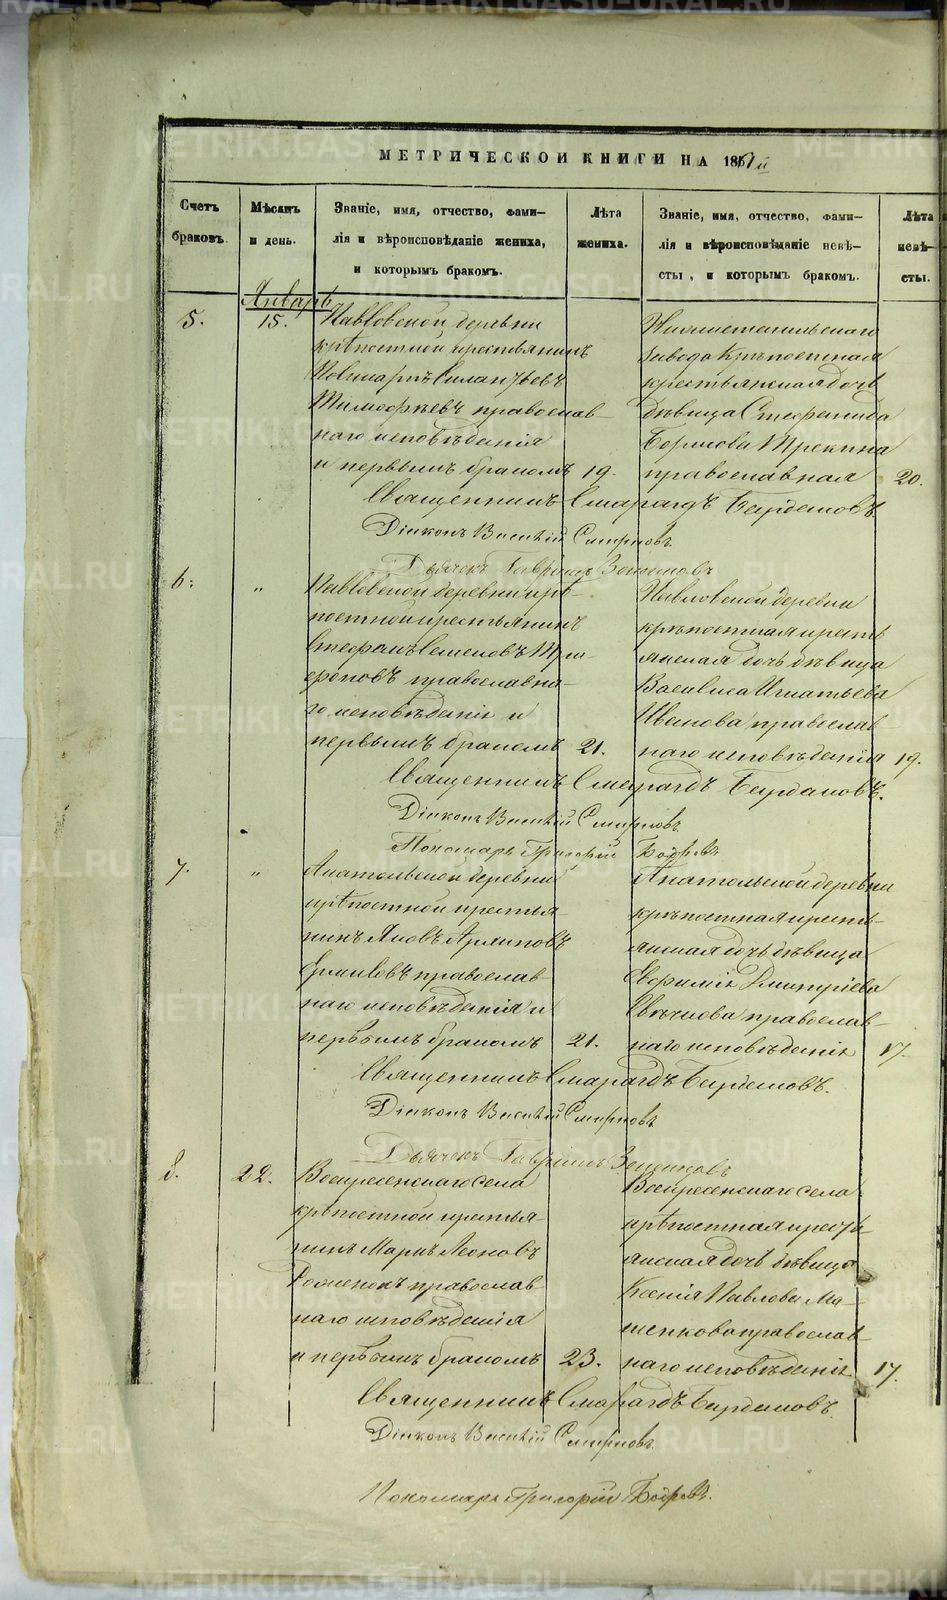 МЕТРИЧЕСКОЙ КНИГИ НА 1861й
Счетъ браковъ.
Мѣсяцъ и день.
Званіе, имя, отчество, фами-
лія и вѣроисповѣданіе жениха,
и которымъ бракомъ.
Лѣта жениха.
Званіе, имя, отчество, фами-
лія и вѣроисповѣданіе невѣ-
сты, и которымъ бракомъ.
Лѣта невѣ-
сты.
Январь
5.
15.
Павловской деревни
крѣпостной крестьянинъ
Тимофѣевъ православ-
наго исповѣданія
и первымъ бракомъ
19.
завода крѣпостная
крестьянская дочь
дѣвица Стефанида
Борисова
православная
20.
Священникъ Смарагдъ
Діаконъ Василій Смирновъ
Дьячекъ Гавріилъ
6.
"
Павловской деревни крѣ-
постной крестьянинъ
Стефанъ Семеновъ Три-
фоновъ православна-
го исповѣданія и
первымъ бракомъ
21.
Павловской деревни
крѣпостная кресть
янская дочь дѣвица
Василиса Игнатьева
Иванова православ-
наго исповѣданія
19.
Священникъ Смарагдъ
Діаконъ Василій Смирновъ
Пономарь Григорій
7.
"
Анатольской деревни
крѣпостной крестья-
нинъ Яковъ Архиповъ
Ермиловъ православ-
наго исповѣданія и
первымъ бракомъ
21.
Анатольской деревни
крѣпостная кресть-
янская дочь дѣвица
Евфимія Дмитріева
православ-
наго исповѣданія
17.
Священникъ Смарагдъ
Діаконъ Василій Смирновъ
Дьячекъ Гавріилъ
8.
22.
Воскресенскаго села
крѣпостной крестья-
нинъ Маркъ Леоновъ
православ-
наго исповѣданія
и первымъ бракомъ
23.
Воскресенскаго села
крѣпостная кресть
янская дочь дѣвица
Ксенія Павлова Ма-
шенкова православ-
наго исповѣданія
17.
Священникъ Смарагдъ
Діаконъ Василій Смирновъ
Пономарь Григорій
METRIKI.GASO-URAL.RU